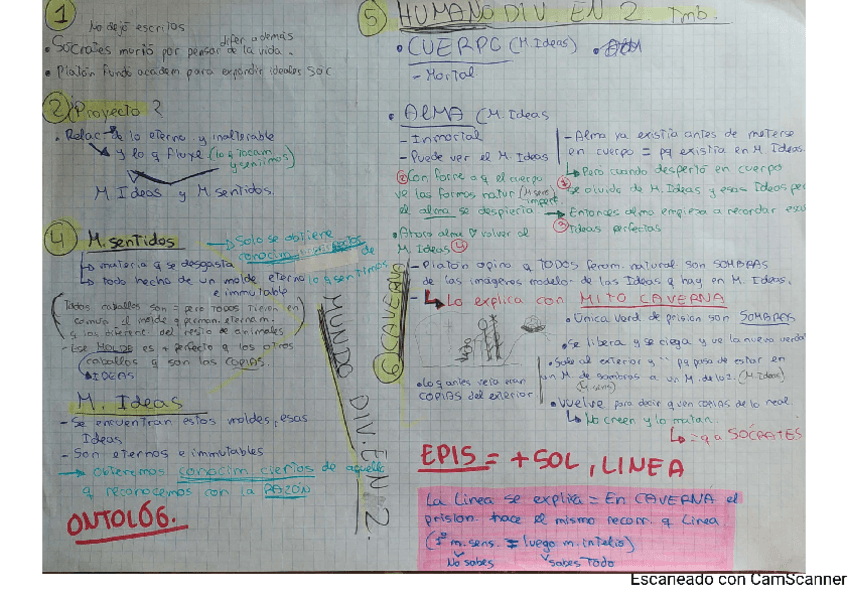 1
No dejó escritos
difer además
• Sócrates murió por pensar de la vida.
• Platón fundó academ para expandir ideales SOC
2 Proyecto?
• Relac de lo eterno y inalterable
y lo q fluye (lo q tocam y sentimos)
M Ideas y M sentidos.
4 M. sentidos
→ Solo se obtiene
conocim. de
lo q sentimos
↳ materia q se desgasta
↳ todo hecho de un molde eterno
e immutable
(Todos caballos son = pero TODOS tienen en
común el molde q permam eternam.
y los diferent del resto de animales)
- Ese MOLDE es + perfecto q los otros
caballos q son las COPIAS.
IDEAS
M. Ideas
- Se encuentran estos moldes, esas
Ideas
- Son eternos e immutables
→ obtenemos conocim ciertos de aquello
q reconocemos con la RAZÓN
ONTOLÓG.
MUNDO DIV. EN 2.
5 HUMANO DIV. EN 2 Tmb.
• CUERPO (M Ideas)
- Mortal
• ALMA (M. Ideas
- Inmortal
- Puede ver el M. Ideas
2 Con forme q el cuerpo
ve las formas natur (M sens) imperf
el alma se despierta
• Ahora alma volver al
M. Ideas 4
- Alma ya existía antes de meterse
en cuerpo = pq existía en M. Ideas.
↳ Pero cuando despertó en cuerpo
1 se olvidó de M. Ideas y esas Ideas per
→ Entonces alma empieza a recordar esas
3 Ideas perfectas
6 CAVERNA
- Platón opina q TODOS fenom. natural son SOMBRAS
de las imágenes modelor de las Ideas q hay en M. Ideas.
- ↳ Lo explica con MITO CAVERNA
• Única verd de prisión son SOMBRAS
• Se libera y se ciega y ve la nueva verdad
• Sale al exterior y " pq pasa de estar en
un M. de sombras a un M. de luz. (M Ideas)
(M sens)
• Los antes veía eran
COPIAS del exterior.
• Vuelve para decir q ven COPIAS de lo real
↳ No creen y lo matan.
↳ = q a SÓCRATES
EPIS = + SOL, LINEA
La Línea se explica = En CAVERNA el
prision. hace el mismo recorr. q Línea
(1º m. sens. = luego m. intelig)
No sabes
sabes Todo
Escaneado con CamScanner